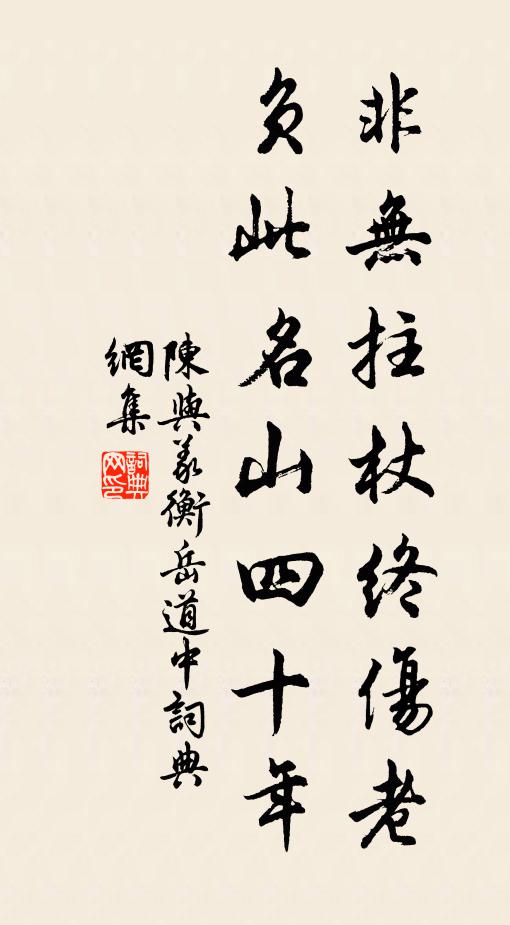 非無拄杖終傷老
負此名山四十年
陳與義衡岳道中詞典
網集
詞典網印